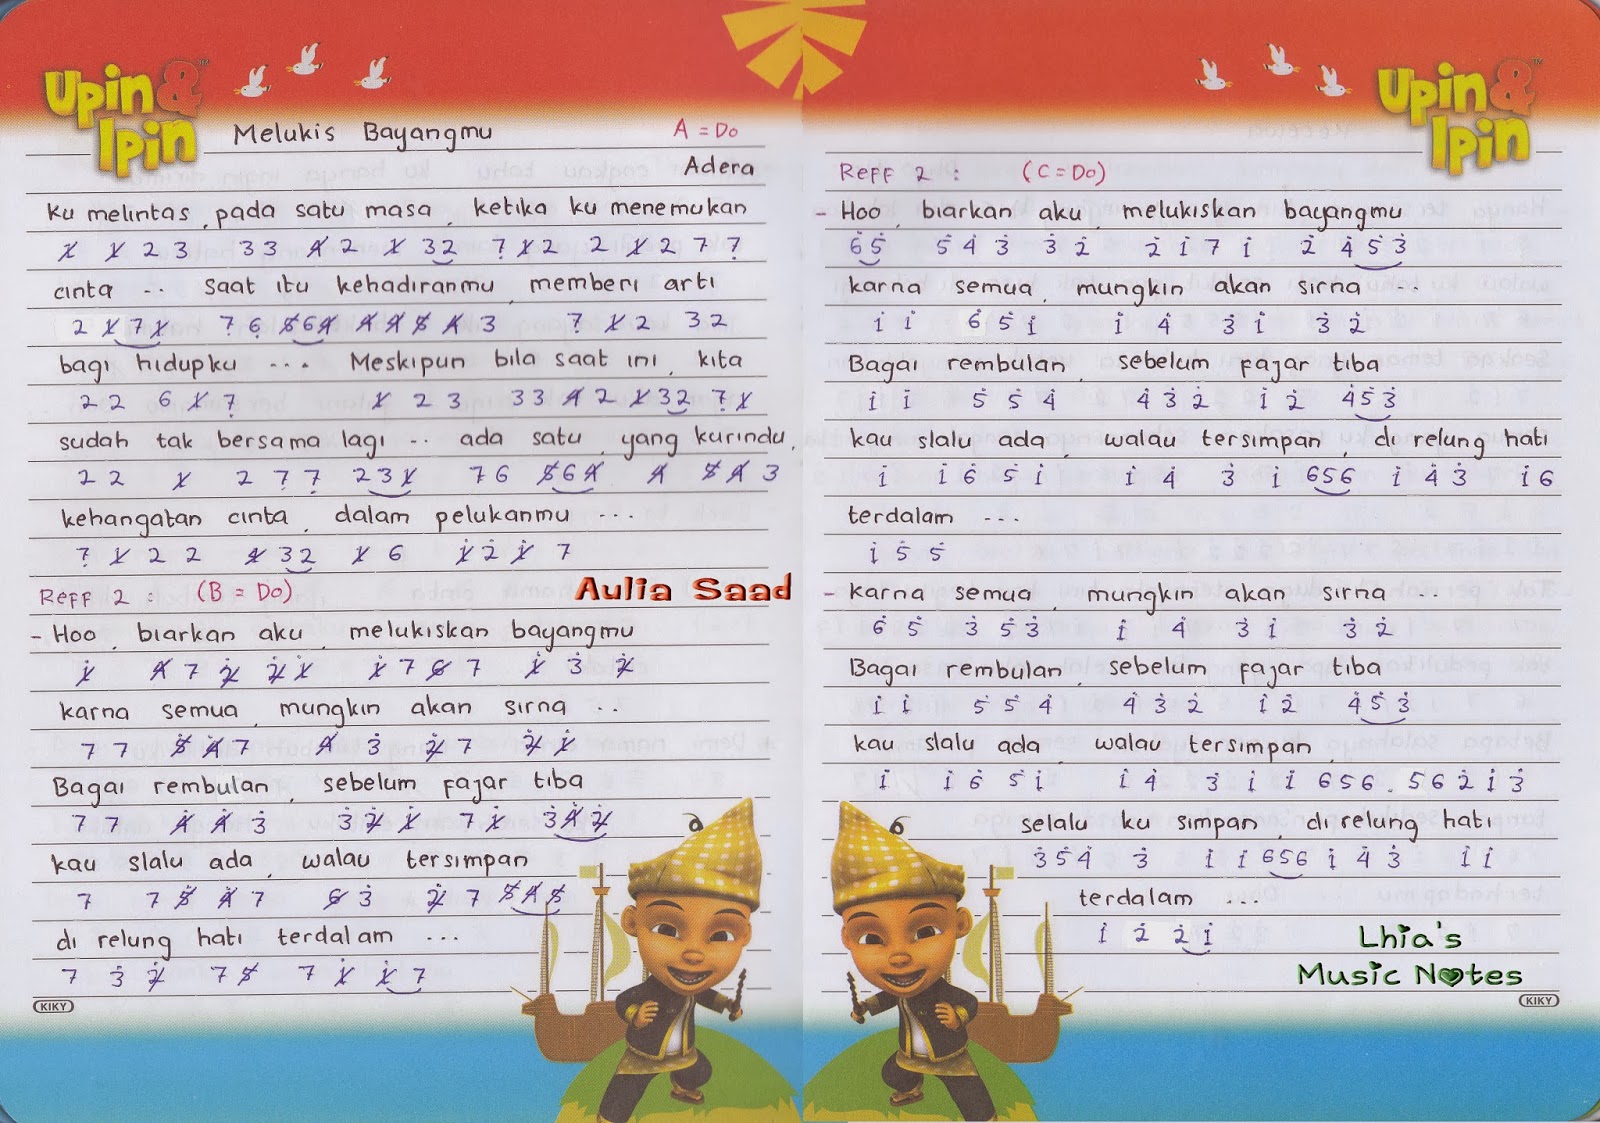 Upin & Ipin™
Melukis Bayangmu A = Do
Adera
ku melintas, pada satu masa, ketika ku menemukan
1̸ 1̸ 2 3 3 3 4̸ 2 1̸ 3 2 7̣ 1̸ 2 2 1̸ 2 7 7̣
cinta .. saat itu kehadiranmu, memberi arti
2 1̸ 7̣ 1̸ 7 6 5̸ 6 4̸ 4̸ 4̸ 5̸ 4̸ 3 7̣ 1̸ 2 3 2
bagi hidupku .... Meskipun bila saat ini, kita
2 2 6 1̸ 7̣ 1̸ 2 3 3 3 4̸ 2 1̸ 3 2 7̣ 1̸
sudah tak bersama lagi .. ada satu, yang kurindu,
2 2 1̸ 2 7̣ 7̣ 2 3 1̸ 7 6 5̸ 6 4̸ 4̸ 5̸ 4̸ 3
kehangatan cinta, dalam pelukanmu ...
7̣ 1̸ 2 2 4̸ 3 2 1̸ 6 1̸̇ 2̇ 1̸̇ 7
Reff 2 : (B = Do)
Aulia Saad
- Hoo, biarkan aku, melukiskan bayangmu
1̸̇ 4̸ 7 2̸̇ 2̸̇ 1̸̇ 1̸̇ 7 6̸ 7 1̸̇ 3̇ 2̸̇
karna semua, mungkin akan sirna ..
7 7 5̸̇ 4̸̇ 7 4̸̇ 3̇ 2̸̇ 7 2̸̇ 1̸̇
Bagai rembulan, sebelum fajar tiba
7 7 4̸̇ 4̸̇ 3̇ 3̇ 2̸̇ 1̸̇ 7 1̸̇ 3̇ 4̸̇ 2̸̇
kau slalu ada, walau tersimpan
7 7 5̸̇ 4̸̇ 7 6̸ 3̇ 2̸̇ 7 5̸ 4̸ 5̸
di relung hati terdalam ...
7 3̇ 2̸̇ 7 5̸ 7 1̸̇ 1̸̇ 7
KIKY
Upin & Ipin™
Reff 2 : (C = Do)
- Hoo, biarkan aku, melukiskan bayangmu
6̇ 5̇ 5̇ 4̇ 3̇ 3̇ 2̇ 2̇ 1̇ 7 1̇ 2̇ 4̇ 5̇ 3̇
karna semua, mungkin akan sirna ...
1̇ 1̇ 6̇ 5̇ 1̇ 1̇ 4̇ 3̇ 1̇ 3̇ 2̇
Bagai rembulan, sebelum fajar tiba
1̇ 1̇ 5̇ 5̇ 4̇ 4̇ 3̇ 2̇ 1̇ 2̇ 4̇ 5̇ 3̇
kau slalu ada, walau tersimpan, di relung hati
1̇ 1̇ 6̇ 5̇ 1̇ 1̇ 4̇ 3̇ 1̇ 6 5 6 1̇ 4̇ 3̇ 1̇ 6
terdalam ...
1̇ 5̇ 5̇
- karna semua, mungkin akan sirna ...
6̇ 5̇ 3̇ 5̇ 3̇ 1̇ 4̇ 3̇ 1̇ 3̇ 2̇
Bagai rembulan, sebelum fajar tiba
1̇ 1̇ 5̇ 5̇ 4̇ 4̇ 3̇ 2̇ 1̇ 2̇ 4̇ 5̇ 3̇
kau slalu ada, walau tersimpan,
1̇ 1̇ 6̇ 5̇ 1̇ 1̇ 4̇ 3̇ 1̇ 1̇ 6 5 6 . 5 6 2̇ 1̇ 3̇
selalu ku simpan, di relung hati
3̇ 5̇ 4̇ 3̇ 1̇ 1̇ 6 5 6 1̇ 4̇ 3̇ 1̇ 1̇
terdalam ...
1̇ 2̇ 2̇ 1̇
Lhia's
Music Notes
KIKY